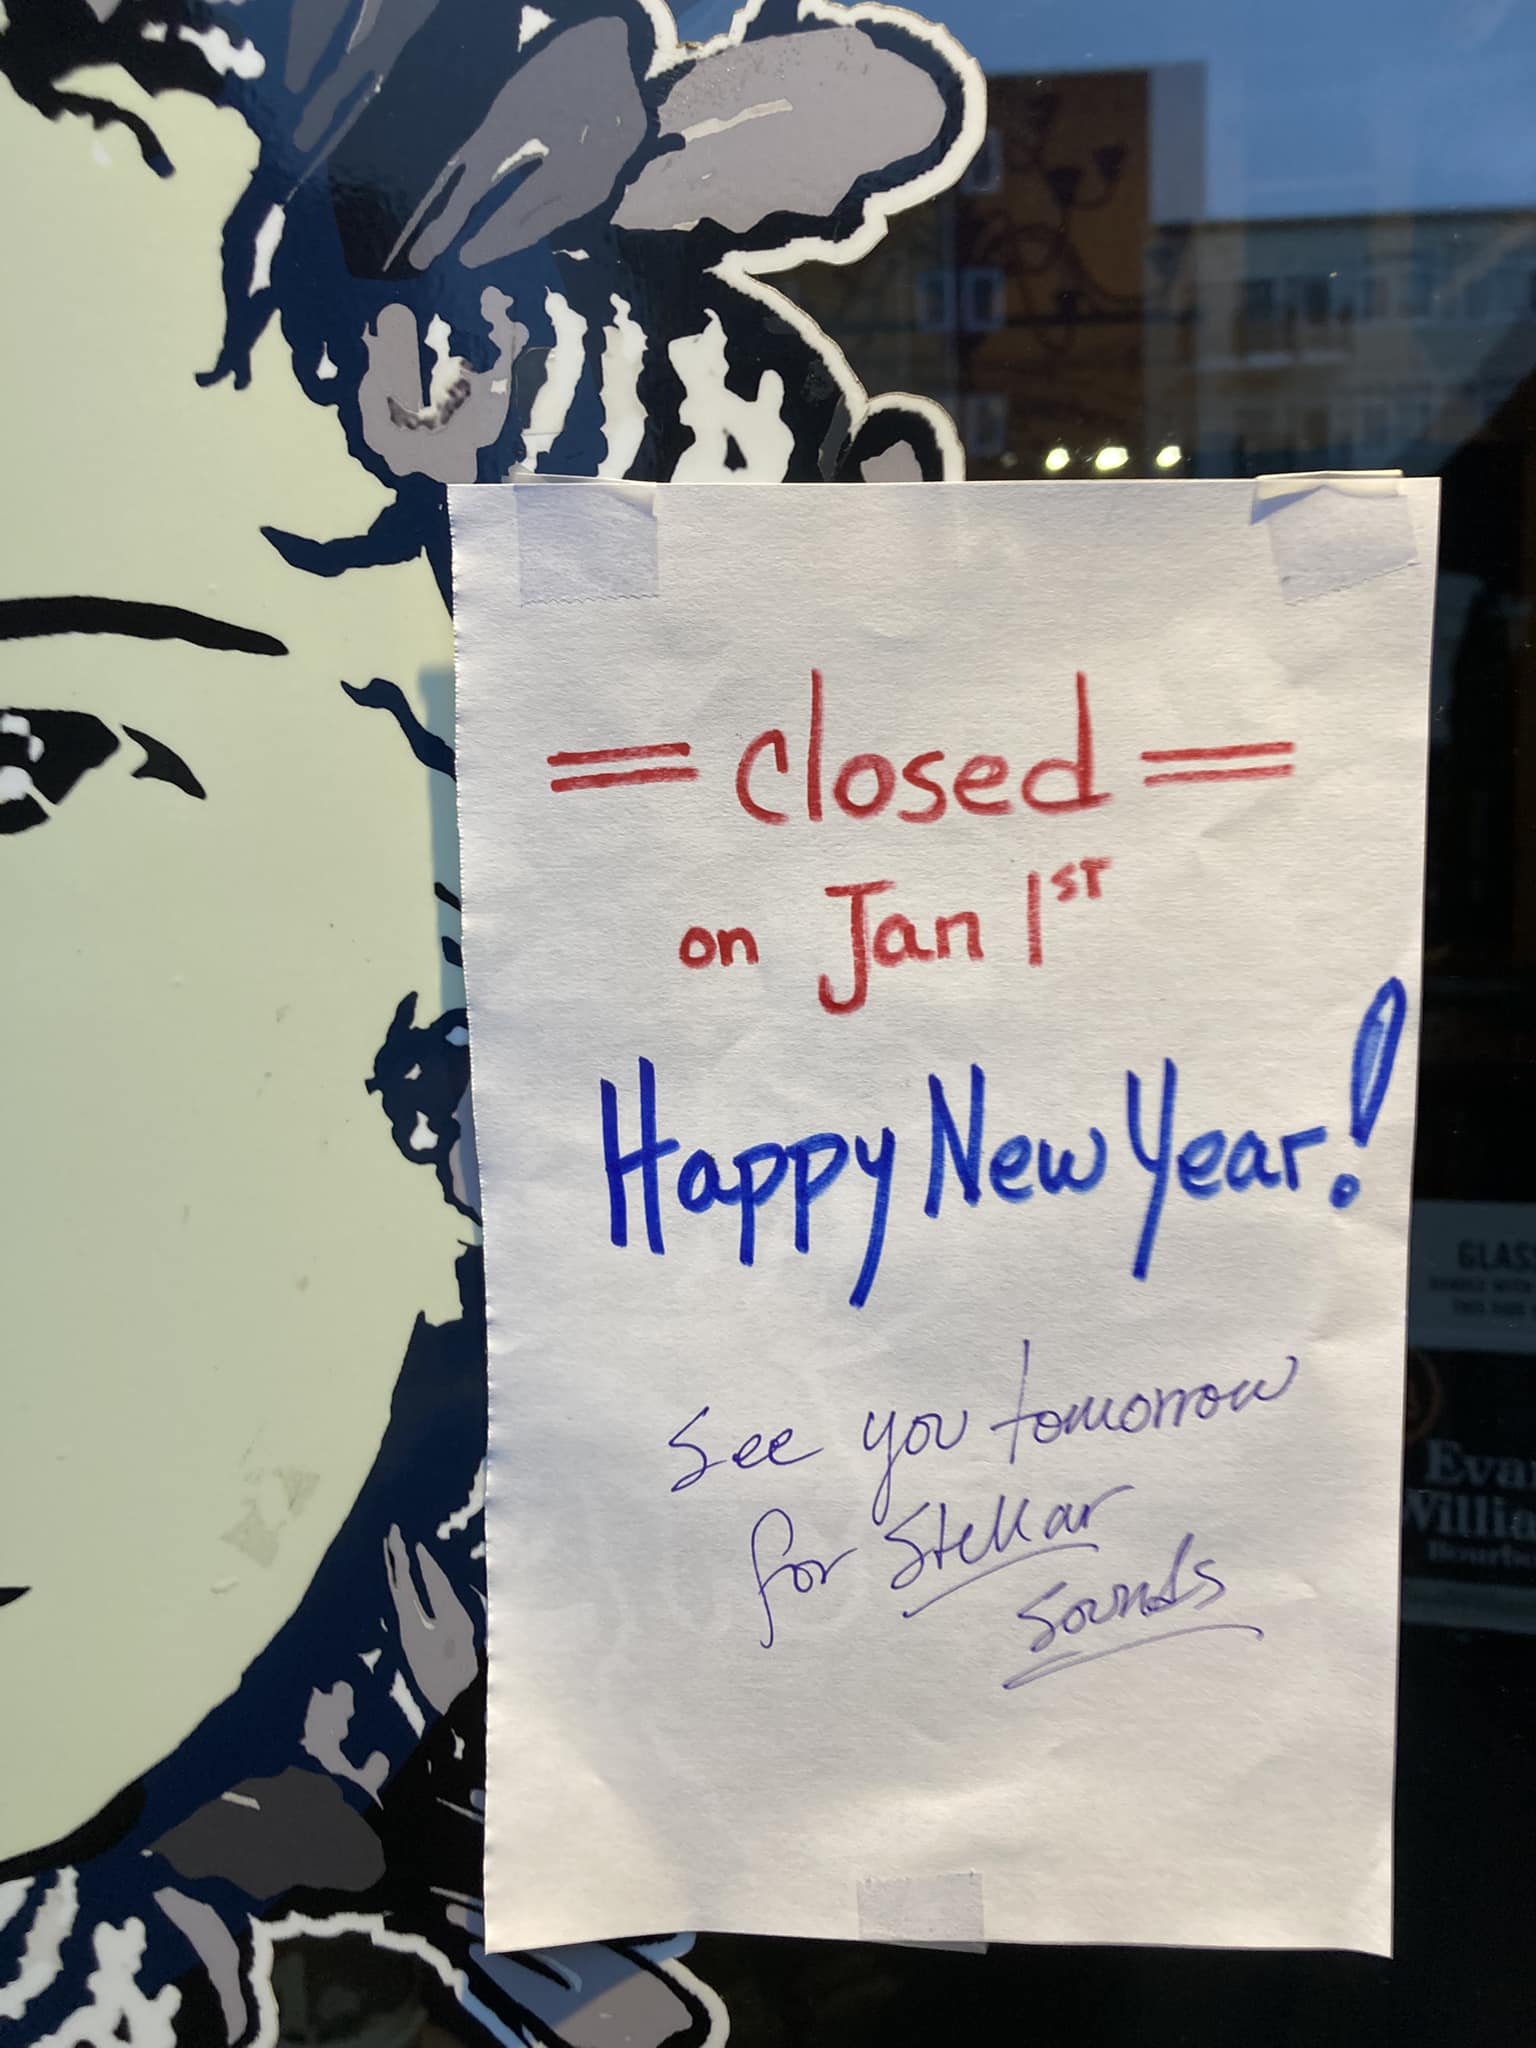 = Closed =
on Jan 1ST
Happy New Year!
See you tomorrow
for Stellar
Sounds
GLAS
Eva
Willia
Bourb